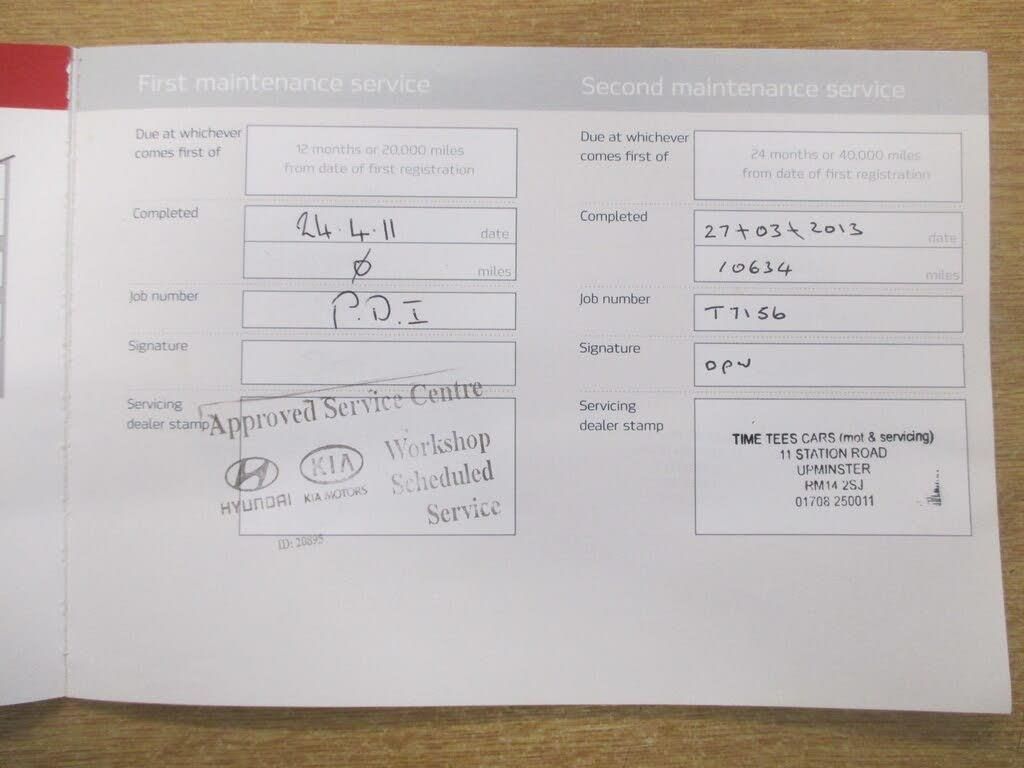 First maintenance service
Due at whichever
comes first of
12 months or 20,000 miles
from date of first registration
Completed
24.4.11 date
ø miles
Job number
P.D.I
Signature
Servicing
dealer stamp
Approved Service Centre
HYUNDAI
KIA
KIA MOTORS
Workshop
Scheduled
Service
ID: 20895
Second maintenance service
Due at whichever
comes first of
24 months or 40,000 miles
from date of first registration
Completed
27+03+2013 date
10634 miles
Job number
T7156
Signature
opw
Servicing
dealer stamp
TIME TEES CARS (mot & servicing)
11 STATION ROAD
UPMINSTER
RM14 2SJ
01708 250011